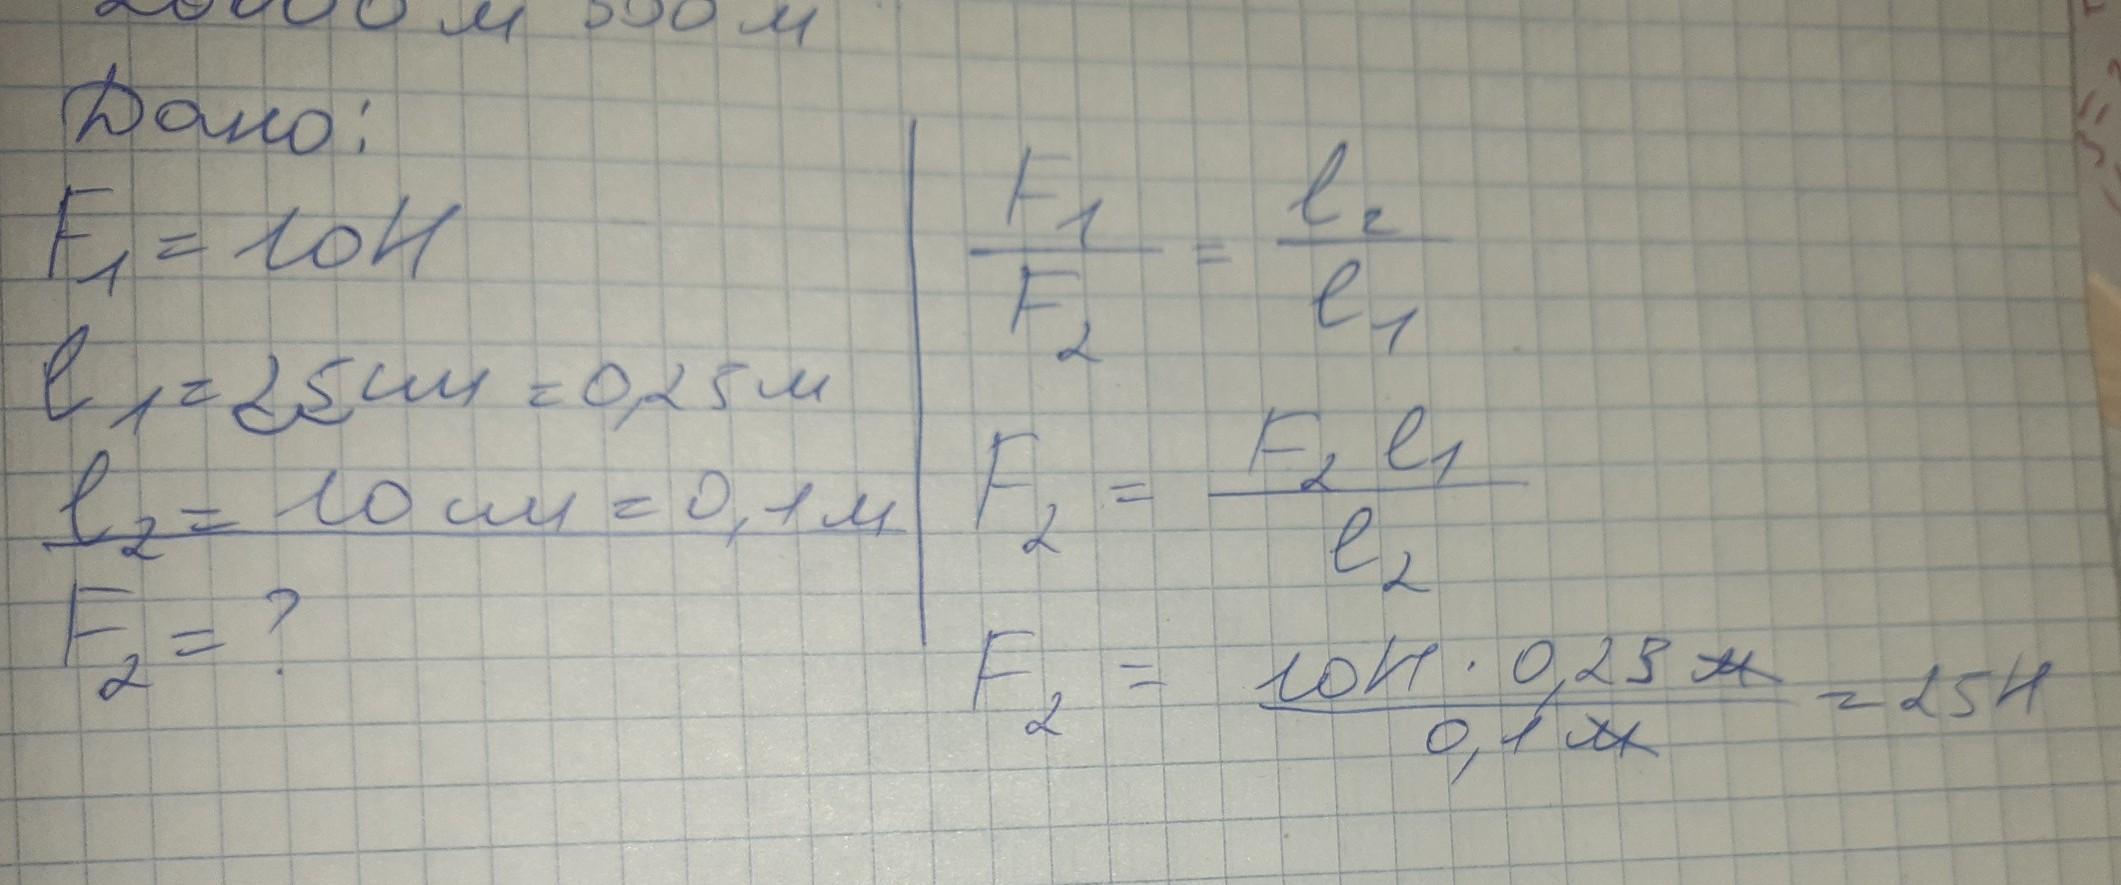 20000 м 500 м
Дано:
F₁ = 10Н
l₁ = 25 см = 0,25 м
l₂ = 10 см = 0,1 м
F₂ = ?
F₁/F₂ = l₂/l₁
F₂ = F₂ l₁/l₂
F₂ = 10Н · 0,25 м/0,1 м = 25Н